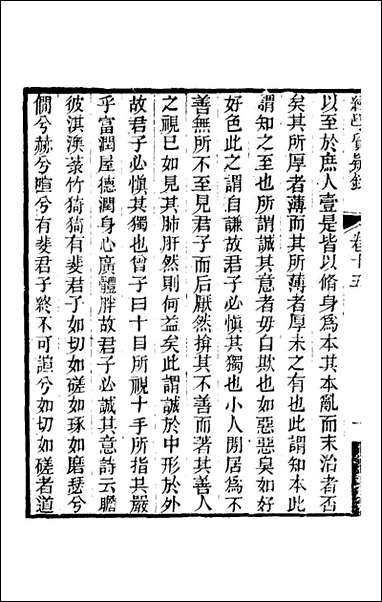 經學質疑錄 卷十五 一
以至於庶人壹是皆以脩身爲本其本亂而末治者否
矣其所厚者薄而其所薄者厚未之有也此謂知本此
謂知之至也所謂誠其意者毋自欺也如惡惡臭如好
好色此之謂自謙故君子必愼其獨也小人閒居爲不
善無所不至見君子而后厭然揜其不善而著其善人
之視己如見其肺肝然則何益矣此謂誠於中形於外
故君子必愼其獨也曾子曰十目所視十手所指其嚴
乎富潤屋德潤身心廣體胖故君子必誠其意詩云瞻
彼淇澳菉竹猗猗有斐君子如切如磋如琢如磨瑟兮
僩兮赫兮喧兮有斐君子終不可諠兮如切如磋者道